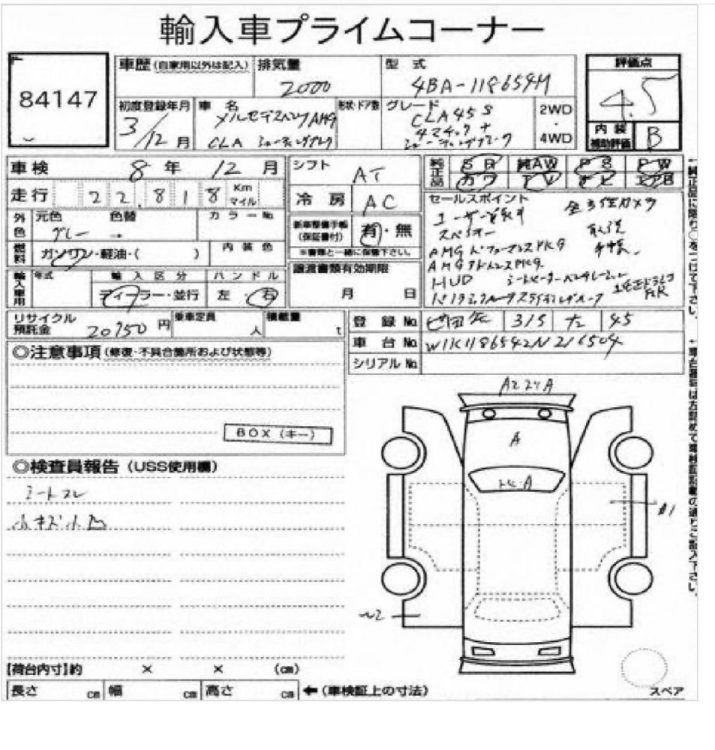 輸入車プライムコーナー
84147
車歴 (自家用以外は記入) 排気量 2000 型式 4BA-118654M 評価点 4.5
初度登録年月 3/12月 車名 メルセデスベンツAMG CLA シューティングブレーク 形状・ドア数 グレード CLA45S 4マチック+ シューティングブレーク 2WD・4WD 内装補助評価 B
車検 8年 12月 シフト AT 純正品 SR 純AW PS PW
カワ TV ナビ エアB
走行 22,818 Km マイル 冷房 AC セールスポイント
外色 元色 グレー 色替 → カラーNo. 新車整備手帳 (保証書付) 有・無
※書類と一緒に保管下さい。
燃料 ガソリン・軽油・( ) 内装色 譲渡書類有効期限 月 日
輸入車用 年式 輸入区分 ディーラー・並行 ハンドル 左 右
ユーザー買取車 全方位カメラ
スペキー 取説
AMGパフォーマンスPKG
AMGアドバンスPKG
HUD シートヒーター
リサイクル預託金 20750円 乗車定員 人 積載量 t 登録No. 315 45
車台No. W1K1186542N216504
シリアルNo.
◎注意事項 (修復・不具合箇所および状態等)
BOX (キー)
◎検査員報告 (USS使用欄)
シートスレ
小キズ小凹
Aスジキズ A
A
トビA
A1
W2
スペア
【荷台内寸】約 × × (cm)
長さ cm 幅 cm 高さ cm ←(車検証上の寸法)
↑純正品に限り○をつけて下さい。
↑車台番号は左詰めで車検証記載の通りご記入下さい。